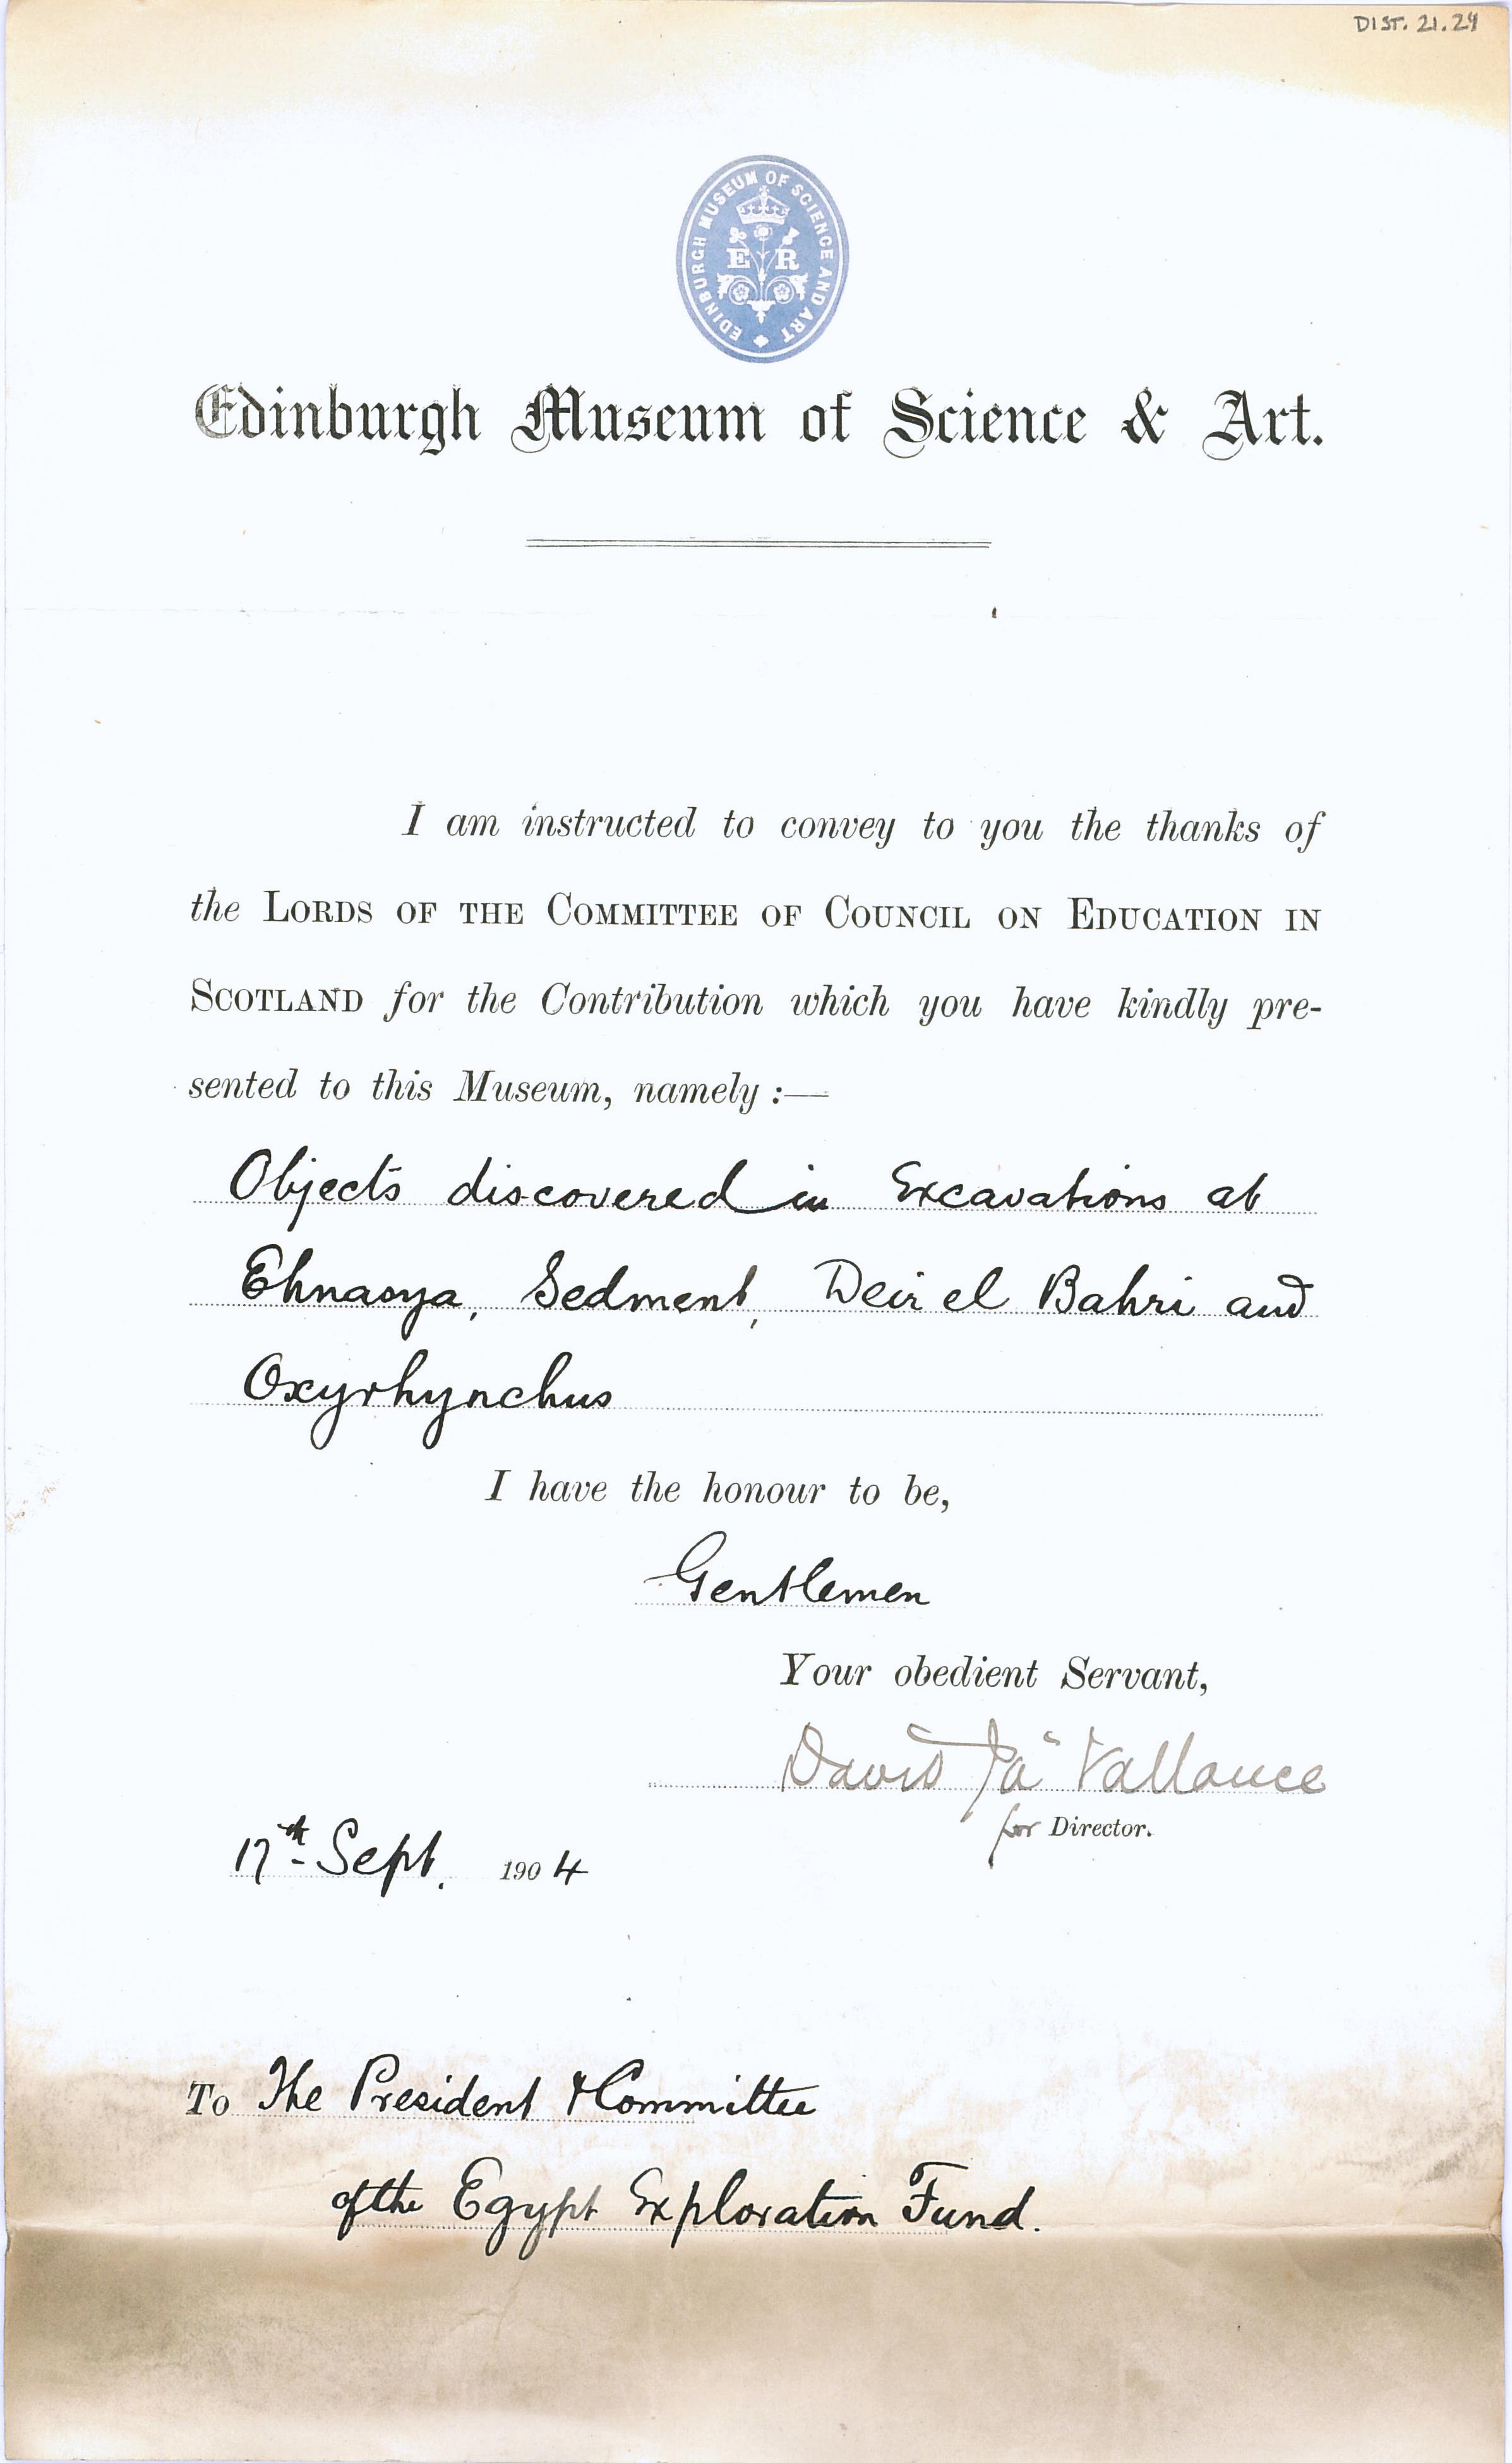 DIST. 21.24
EDINBURGH MUSEUM OF SCIENCE AND ART
E R
Edinburgh Museum of Science & Art.
I am instructed to convey to you the thanks of
the LORDS OF THE COMMITTEE OF COUNCIL ON EDUCATION IN
SCOTLAND for the Contribution which you have kindly pre-
sented to this Museum, namely :—
Objects discovered in Excavations at
Ehnasya, Sedment, Deir el Bahri and
Oxyrhynchus
I have the honour to be,
Gentlemen
Your obedient Servant,
David Ja^s Vallance
for Director.
17th Sept. 1904
To The President & Committee
of the Egypt Exploration Fund.